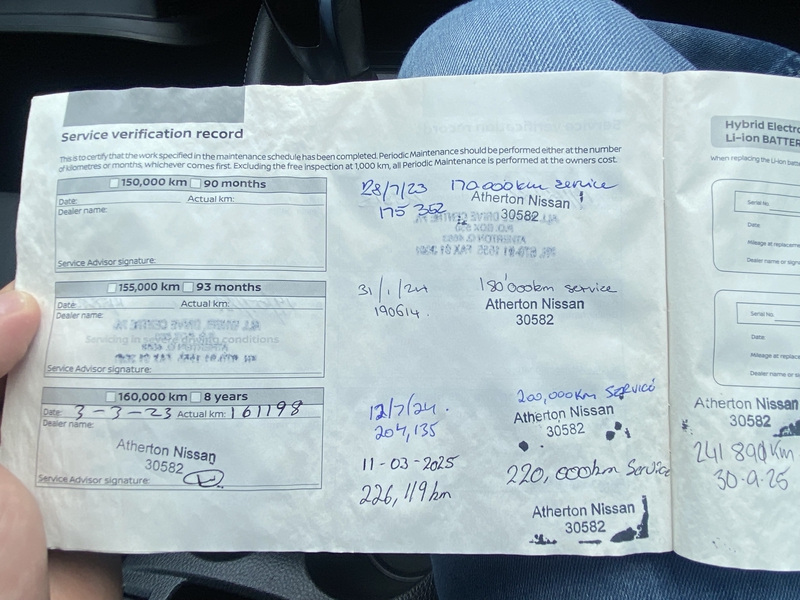 Service verification record
This is to certify that the work specified in the maintenance schedule has been completed. Periodic Maintenance should be performed either at the number
of kilometres or months, whichever comes first. Excluding the free inspection at 1,000 km, all Periodic Maintenance is performed at the owners cost.
150,000 km 90 months
Date: Actual km:
Dealer name:
Service Advisor signature:
155,000 km 93 months
Date: Actual km:
Dealer name:
Servicing in severe driving conditions.
Service Advisor signature:
160,000 km 8 years
Date: 3-3-23 Actual km: 161198
Dealer name:
Atherton Nissan
30582
Service Advisor signature:
28/7/23 170,000km service
175 362
Atherton Nissan
30582
31/1/24 180,000km service
190614.
Atherton Nissan
30582
12/7/24. 200,000km Service
204,135
Atherton Nissan
30582
11-03-2025 220,000km Service
226,119km
Atherton Nissan
30582
Hybrid Electr
Li-ion BATTER
When replacing the Li-ion batt
Serial No.
Date:
Mileage at replaceme
Dealer name or signa
Serial No.
Date:
Mileage at replace
Dealer name or sign
Atherton Nissan
30582
241 890 Km
30.9.25